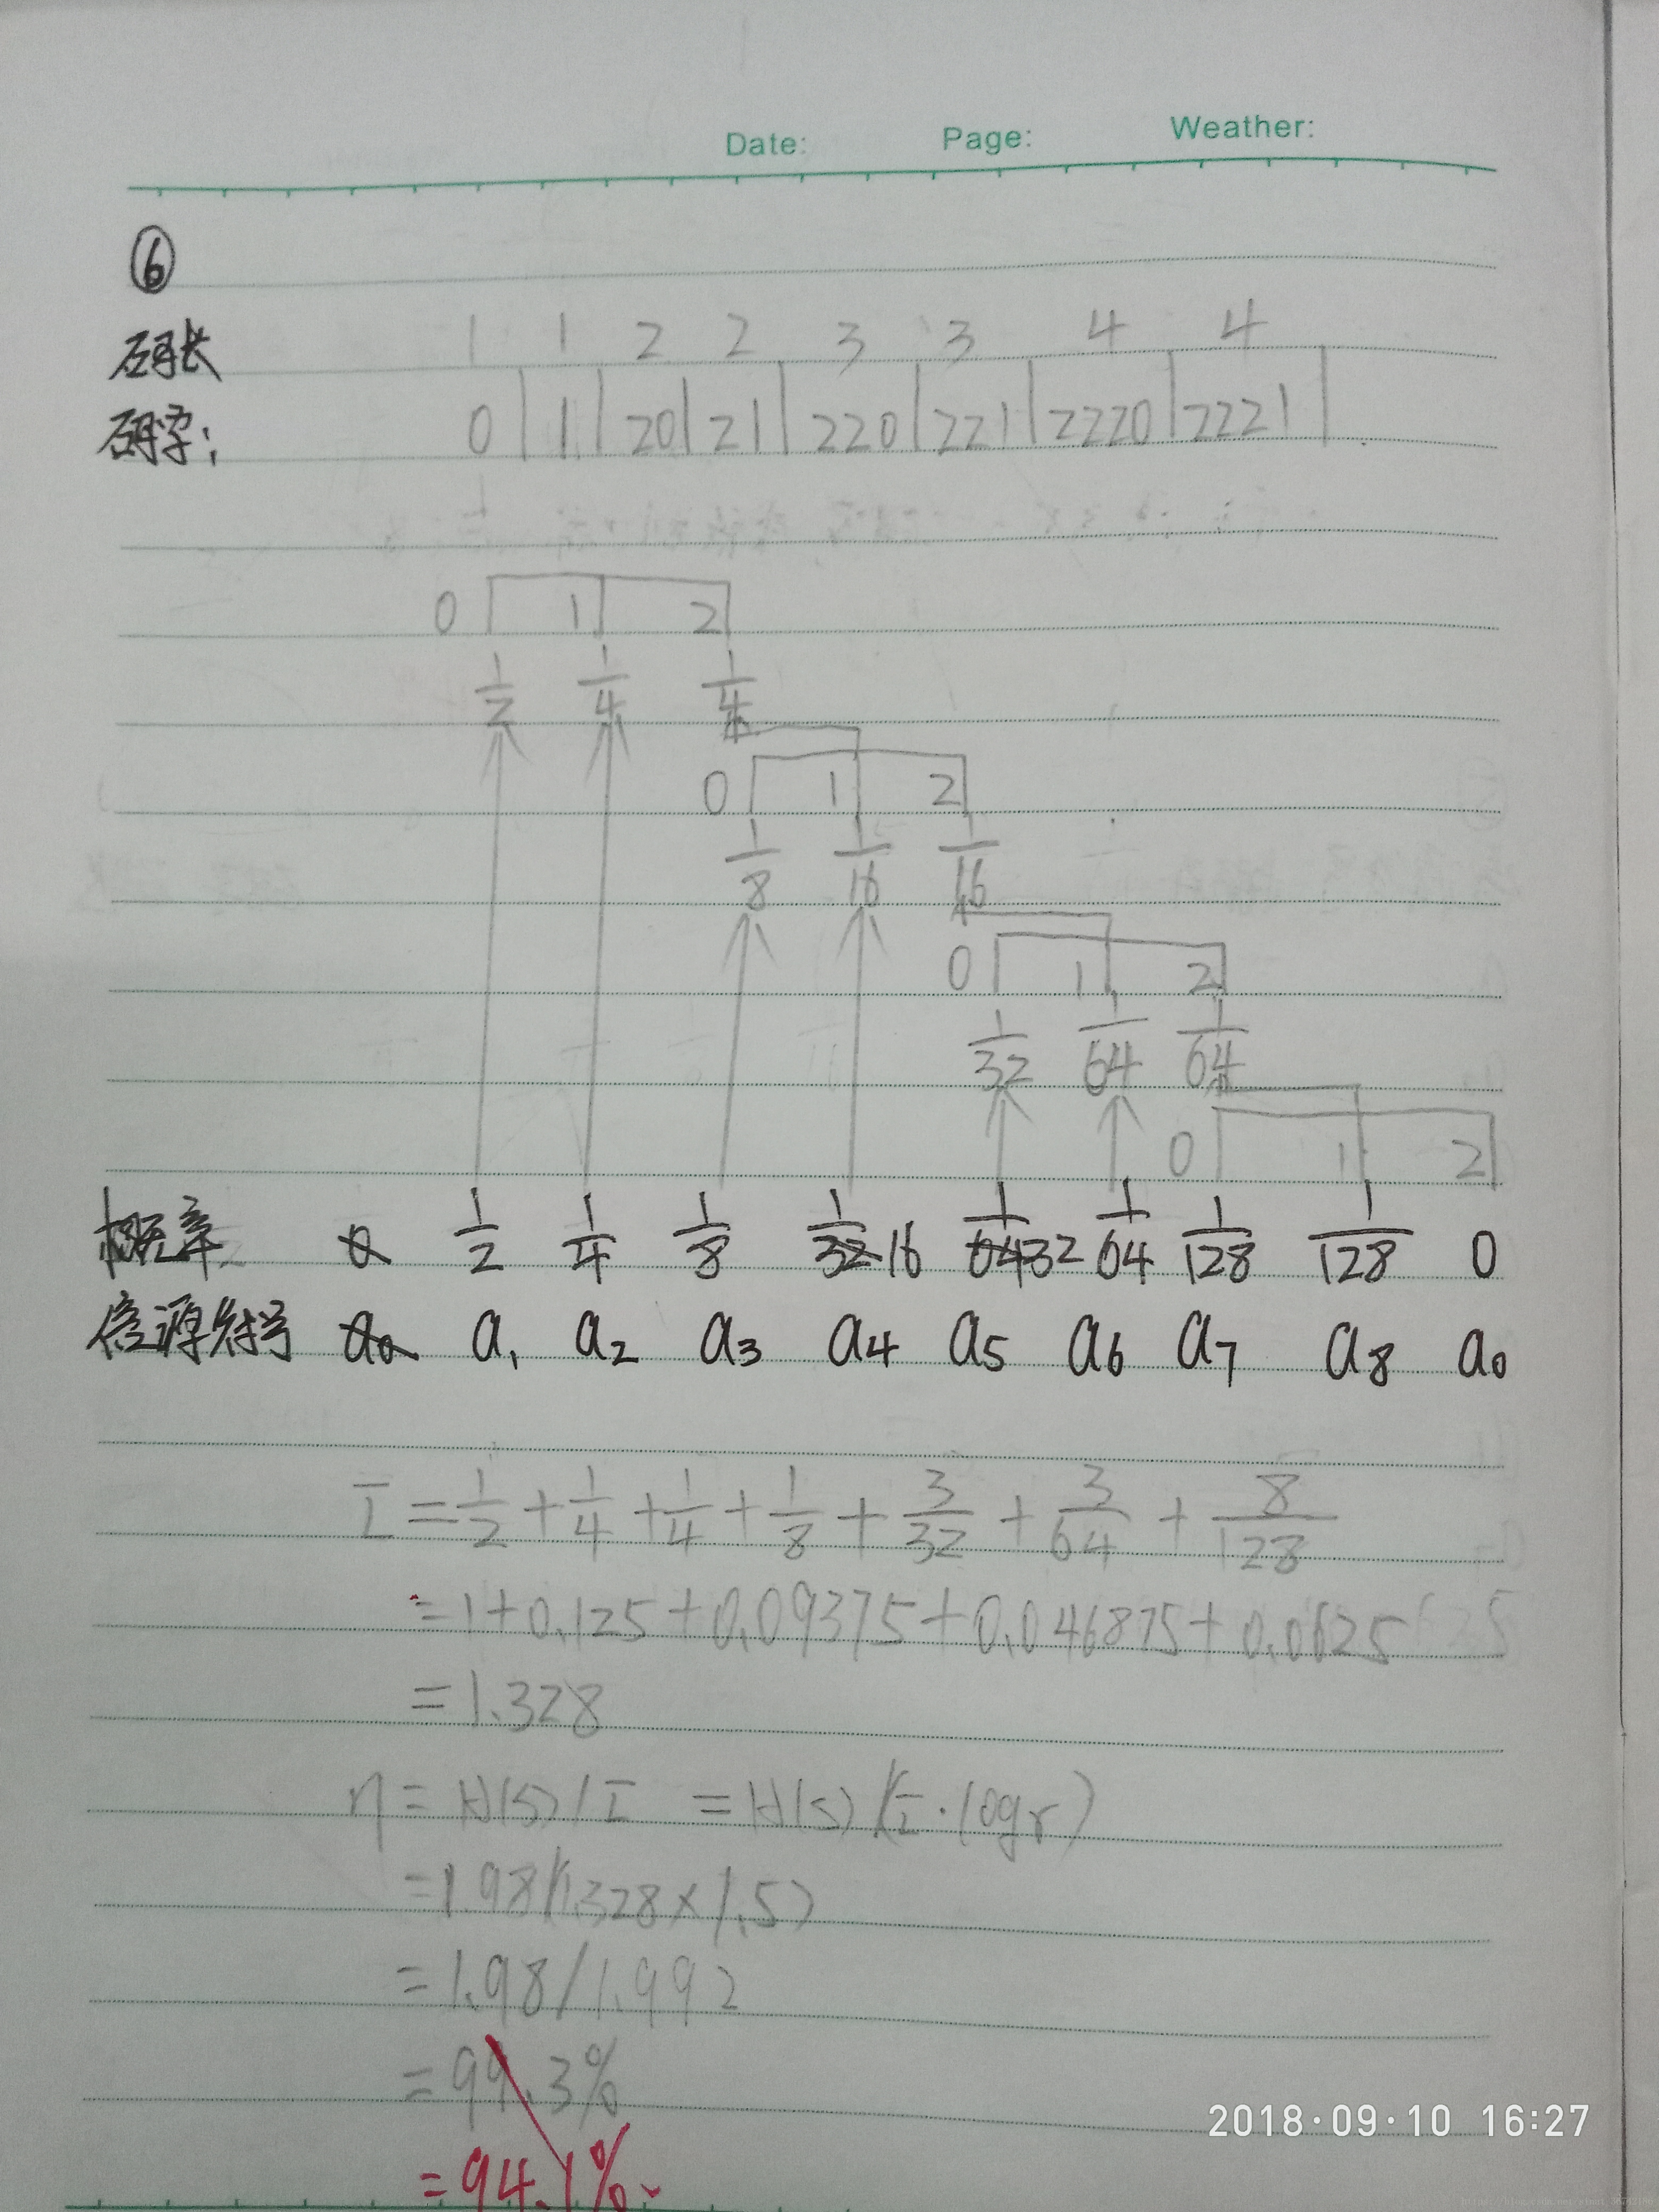 Date: Page: Weather:
⑥
码长 1 1 2 2 3 3 4 4
码字: 0 | 1 | 20 | 21 | 220 | 221 | 2220 | 2221 |
0 1 2
1/2 1/4 1/4
0 1 2
1/8 1/16 1/16
0 1 2
1/32 1/64 1/64
0 1 2
概率 0 1/2 1/4 1/8 1/32 16 1/64 32 1/64 1/128 1/128 0
信源符号 a0 a1 a2 a3 a4 a5 a6 a7 a8 a0
L̄ = 1/2 + 1/4 + 1/4 + 1/8 + 3/32 + 3/64 + 8/128
= 1+0.125+0.09375+0.046875+0.0625
= 1.328
η = H(S)/L̄ = H(S)/(L̄·logr)
= 1.98/(1.328×1.5)
= 1.98/1.992
= 99.3%
= 94.1%
2018·09·10 16:27